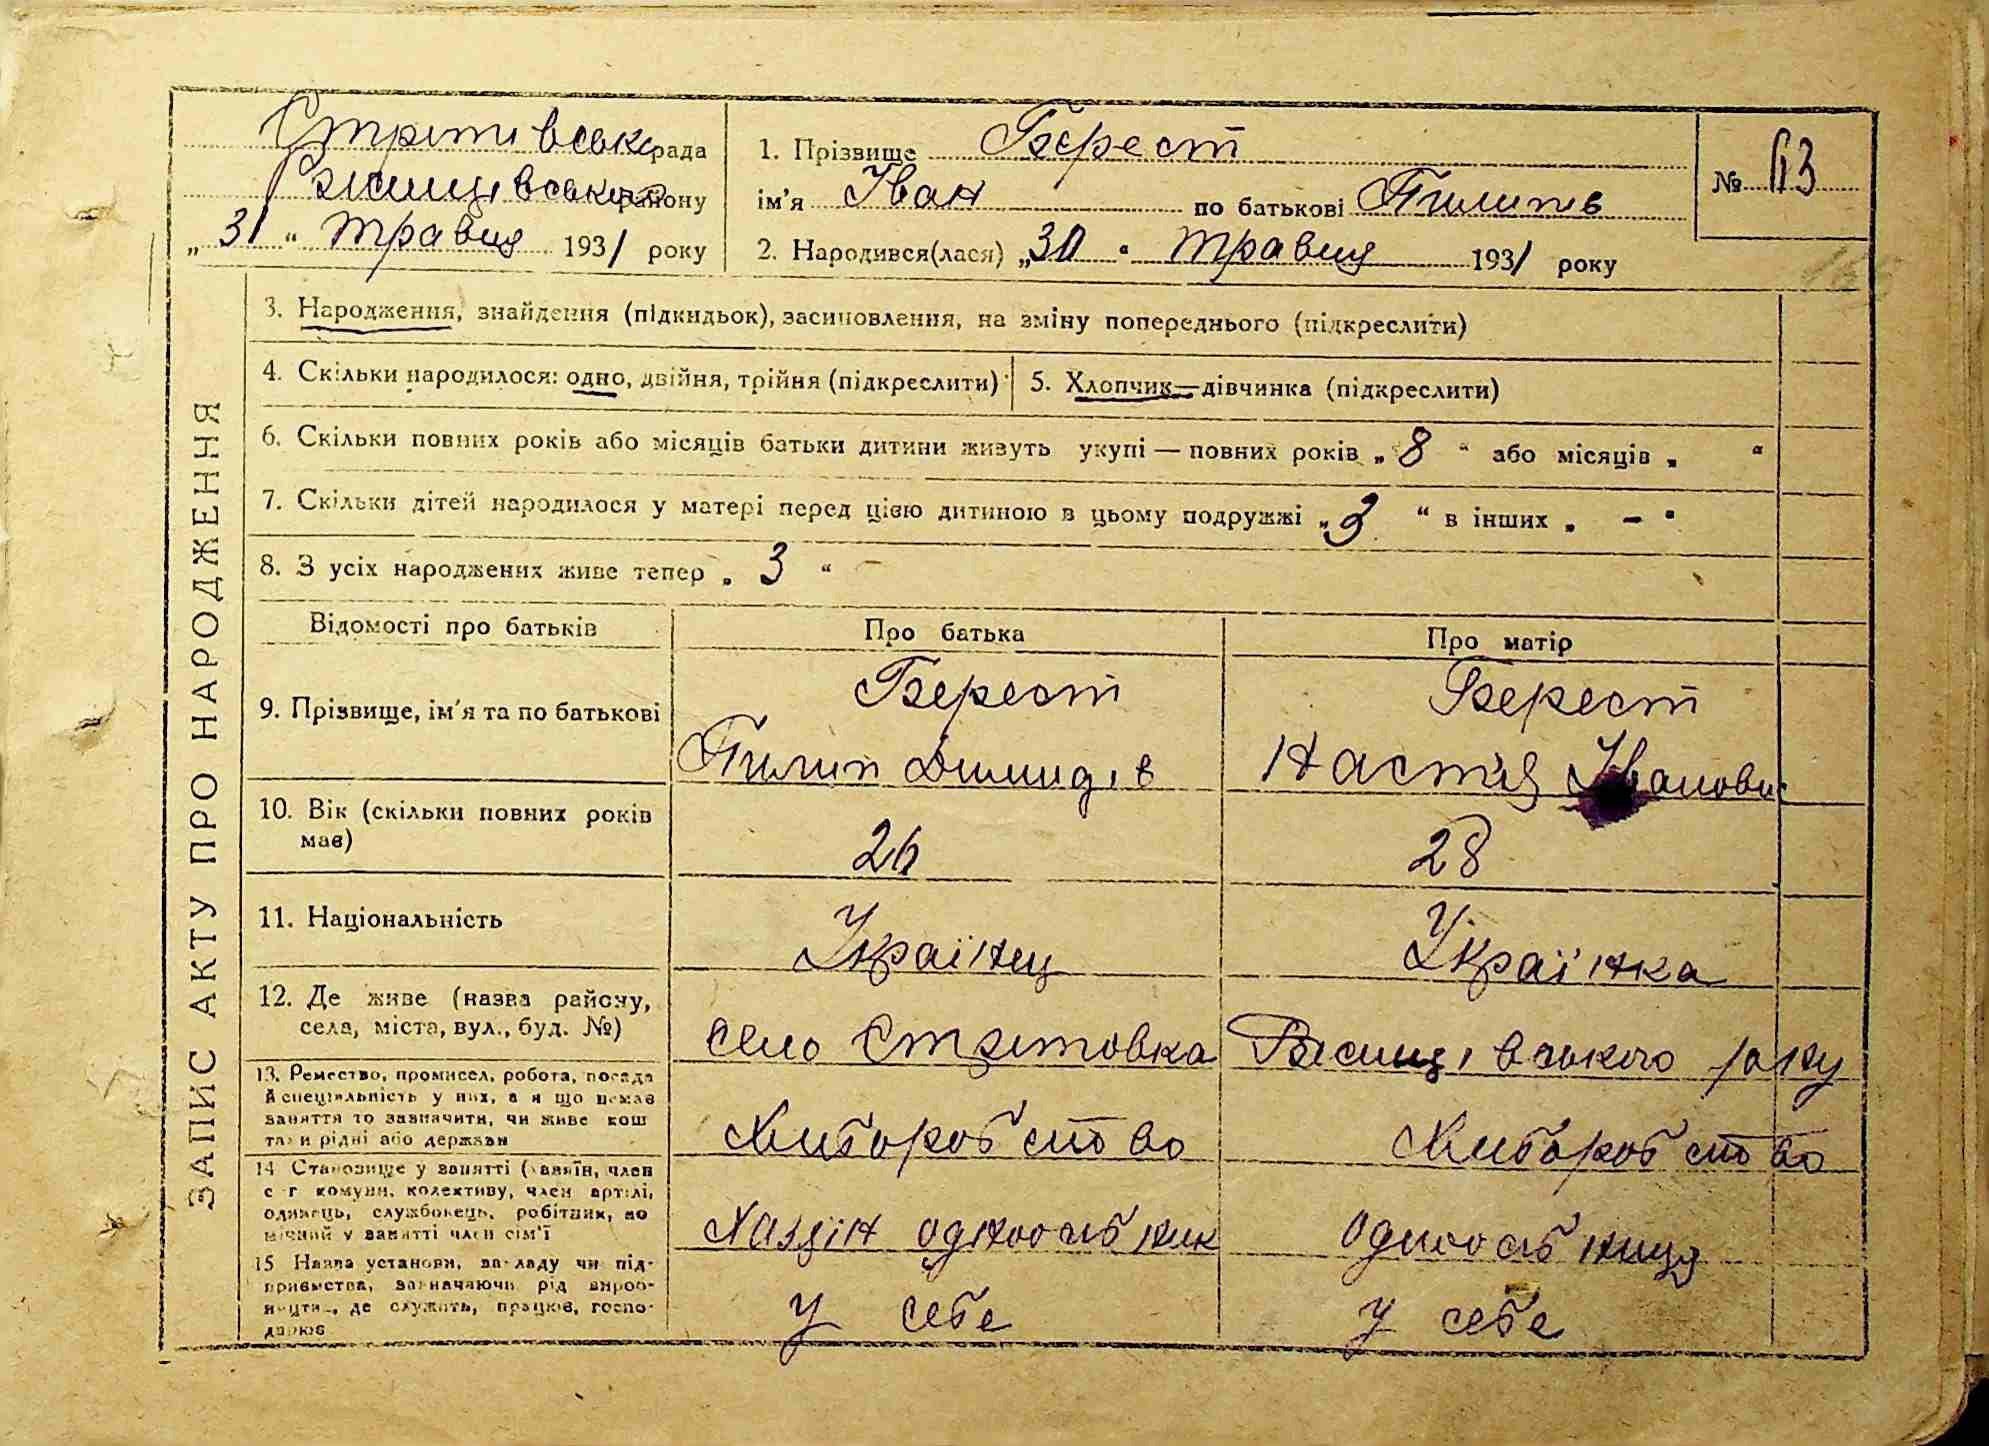 Стритівська рада
Ржищівського району
„31“ травня 1931 року
1. Прізвище Берест
ім'я Іван по батькові Пилипів
2. Народився(лася) „30“ травня 1931 року
№ 43
ЗАПИС АКТУ ПРО НАРОДЖЕННЯ
3. Народження, знайдення (підкидьок), засиновлення, на зміну попереднього (підкреслити)
4. Скільки народилося: одно, двійня, трійня (підкреслити)
5. Хлопчик—дівчинка (підкреслити)
6. Скільки повних років або місяців батьки дитини живуть укупі — повних років „8“ або місяців „ “
7. Скільки дітей народилося у матері перед цією дитиною в цьому подружжі „3“ в інших „ – “
8. З усіх народжених живе тепер „3“
Відомості про батьків
Про батька
Про матір
9. Прізвище, ім'я та по батькові
Берест
Пилип Димидів
Берест
Настия Іванови
10. Вік (скільки повних років
має)
26
28
11. Національність
Українец
Українка
12. Де живе (назва району,
села, міста, вул., буд. №)
село Стритовка
Ржищівського р-ну
13. Ремество, промисел, робота, посада
й спеціяльність у них, а я що немає
заняття то зазначити, чи живе кош
тами рідні або держави
Хліборобство
Хліборобство
14 Становище у занятті (хазяїн, член
с г комуни, колективу, член артілі,
одинець, службовець, робітник, по
мічний у занятті член сім'ї
Хазяїн одноосібник
одноосібниця
15 Назва установи, закладу чи під-
приємства, зазначаючи рід вироб-
ництва, де служить, працює, госпо-
дарює
у себе
у себе